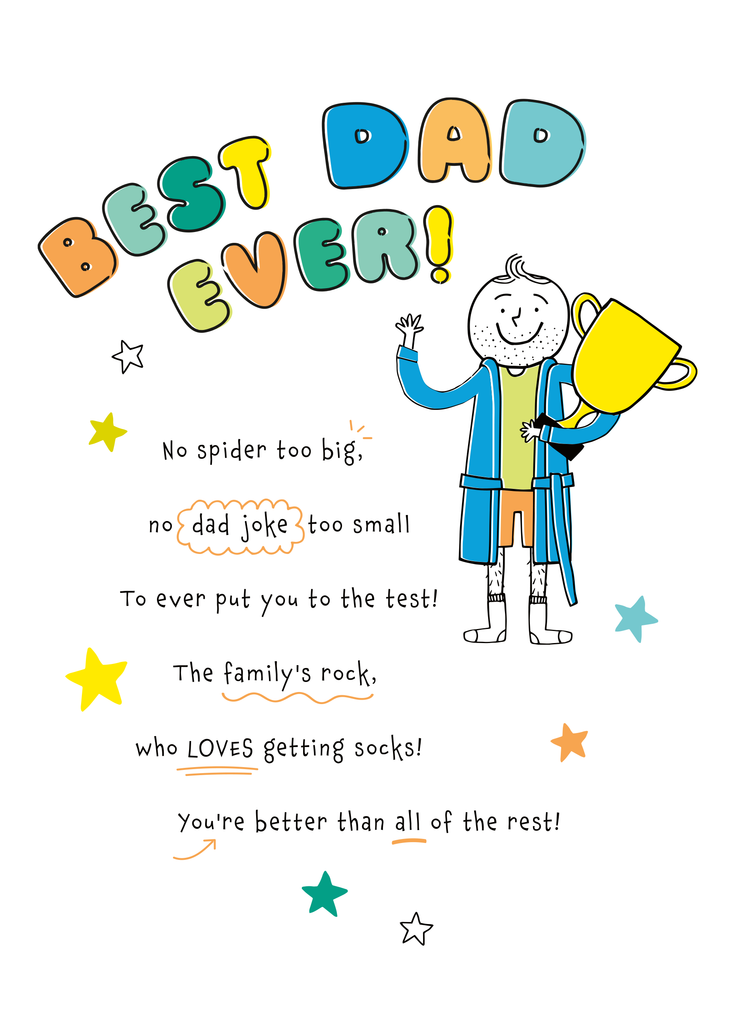 BEST DAD
EVER!
No spider too big,
no dad joke too small
To ever put you to the test!
The family's rock,
who LOVES getting socks!
You're better than all of the rest!